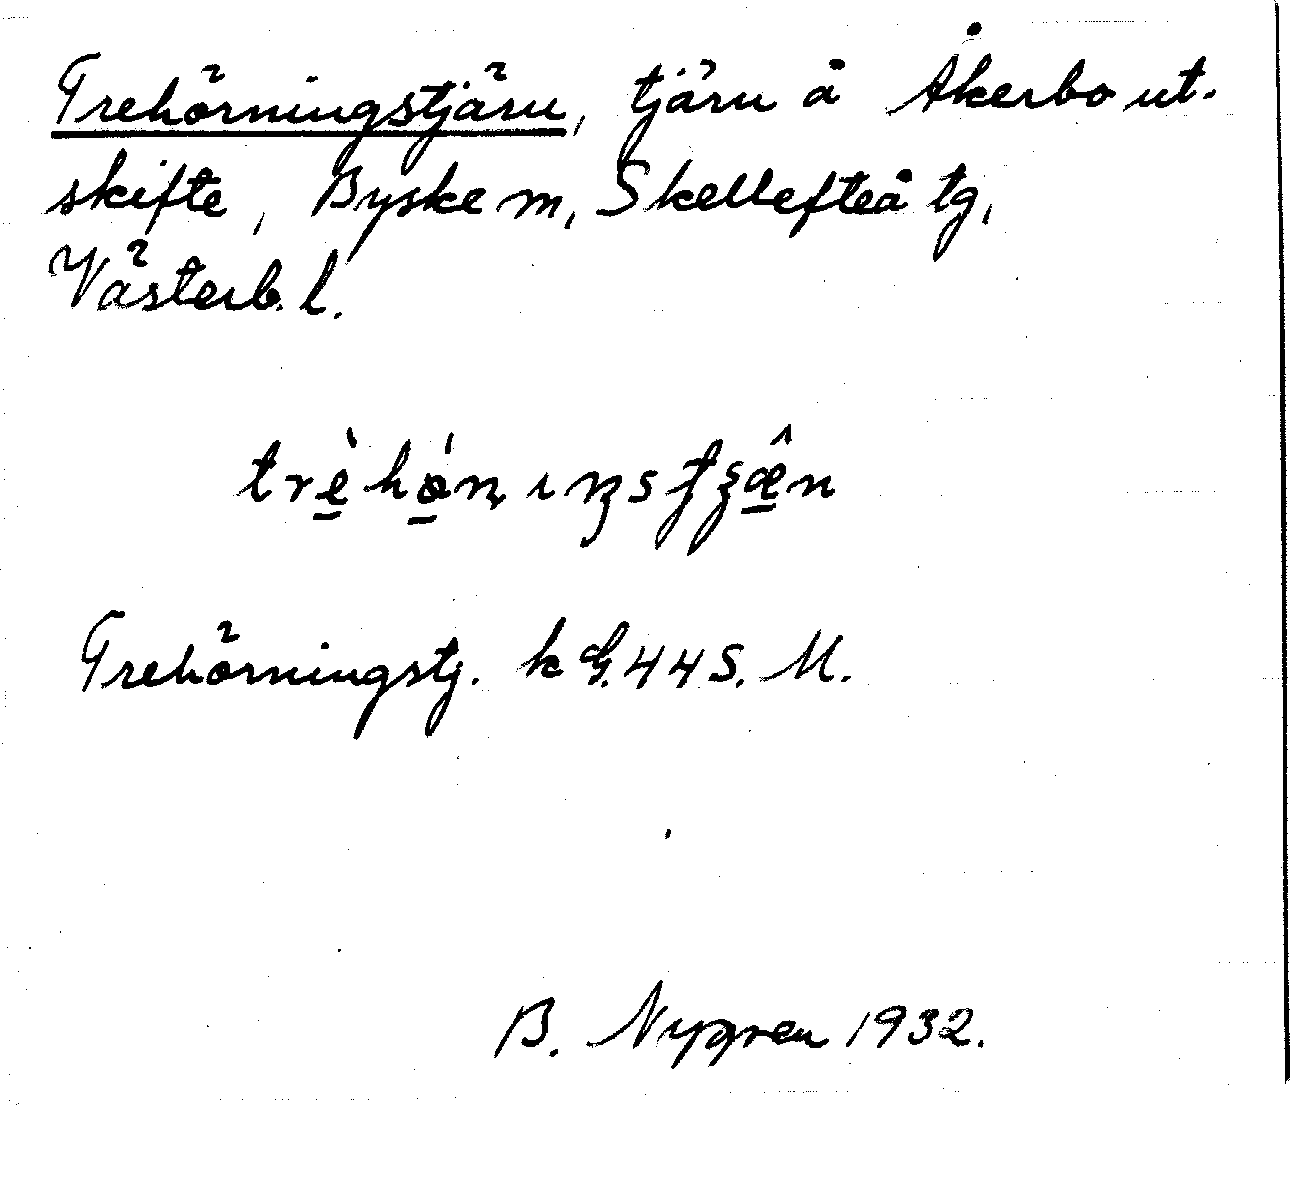 Trehörningstjärn, tjärn å Åkerbo ut-
skifte, Byske m, Skellefteå tg,
Västerb. l.
Trehörningstj. k G. 44 S. M.
B. Nygren 1932.